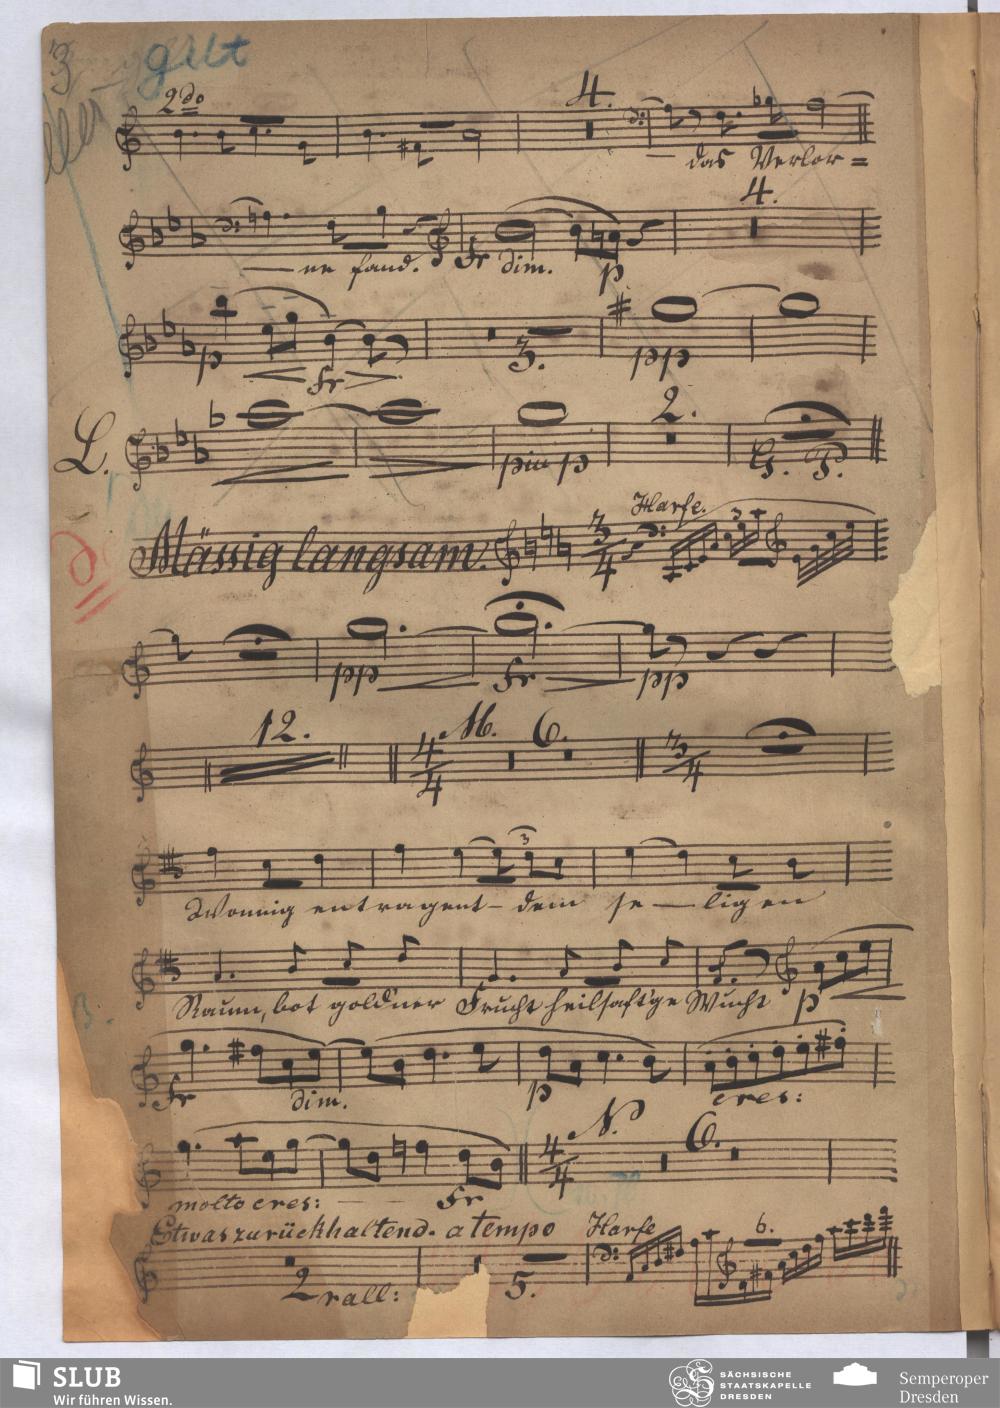 3 gilt
2do
4.
das Verlor=
4.
ne fand. fr dim. p
p fr 3. pp
L. 2.
piu p G. P.
Harfe.
Mässig langsam. 3/4 3
pp fr pp
12. 4/4 M. 6. 3/4
3
Wonnig entragent- dem se-ligen
Raum, bot gold'ner Frucht heilsaft'ge Wucht p
fr dim. p cres:
4/4 N. 6.
molto cres: fr
Etwas zurückhaltend. a tempo Harfe 6.
2 rall: 5.
SLUB
Wir führen Wissen.
SÄCHSISCHE
STAATSKAPELLE
DRESDEN
Semperoper
Dresden